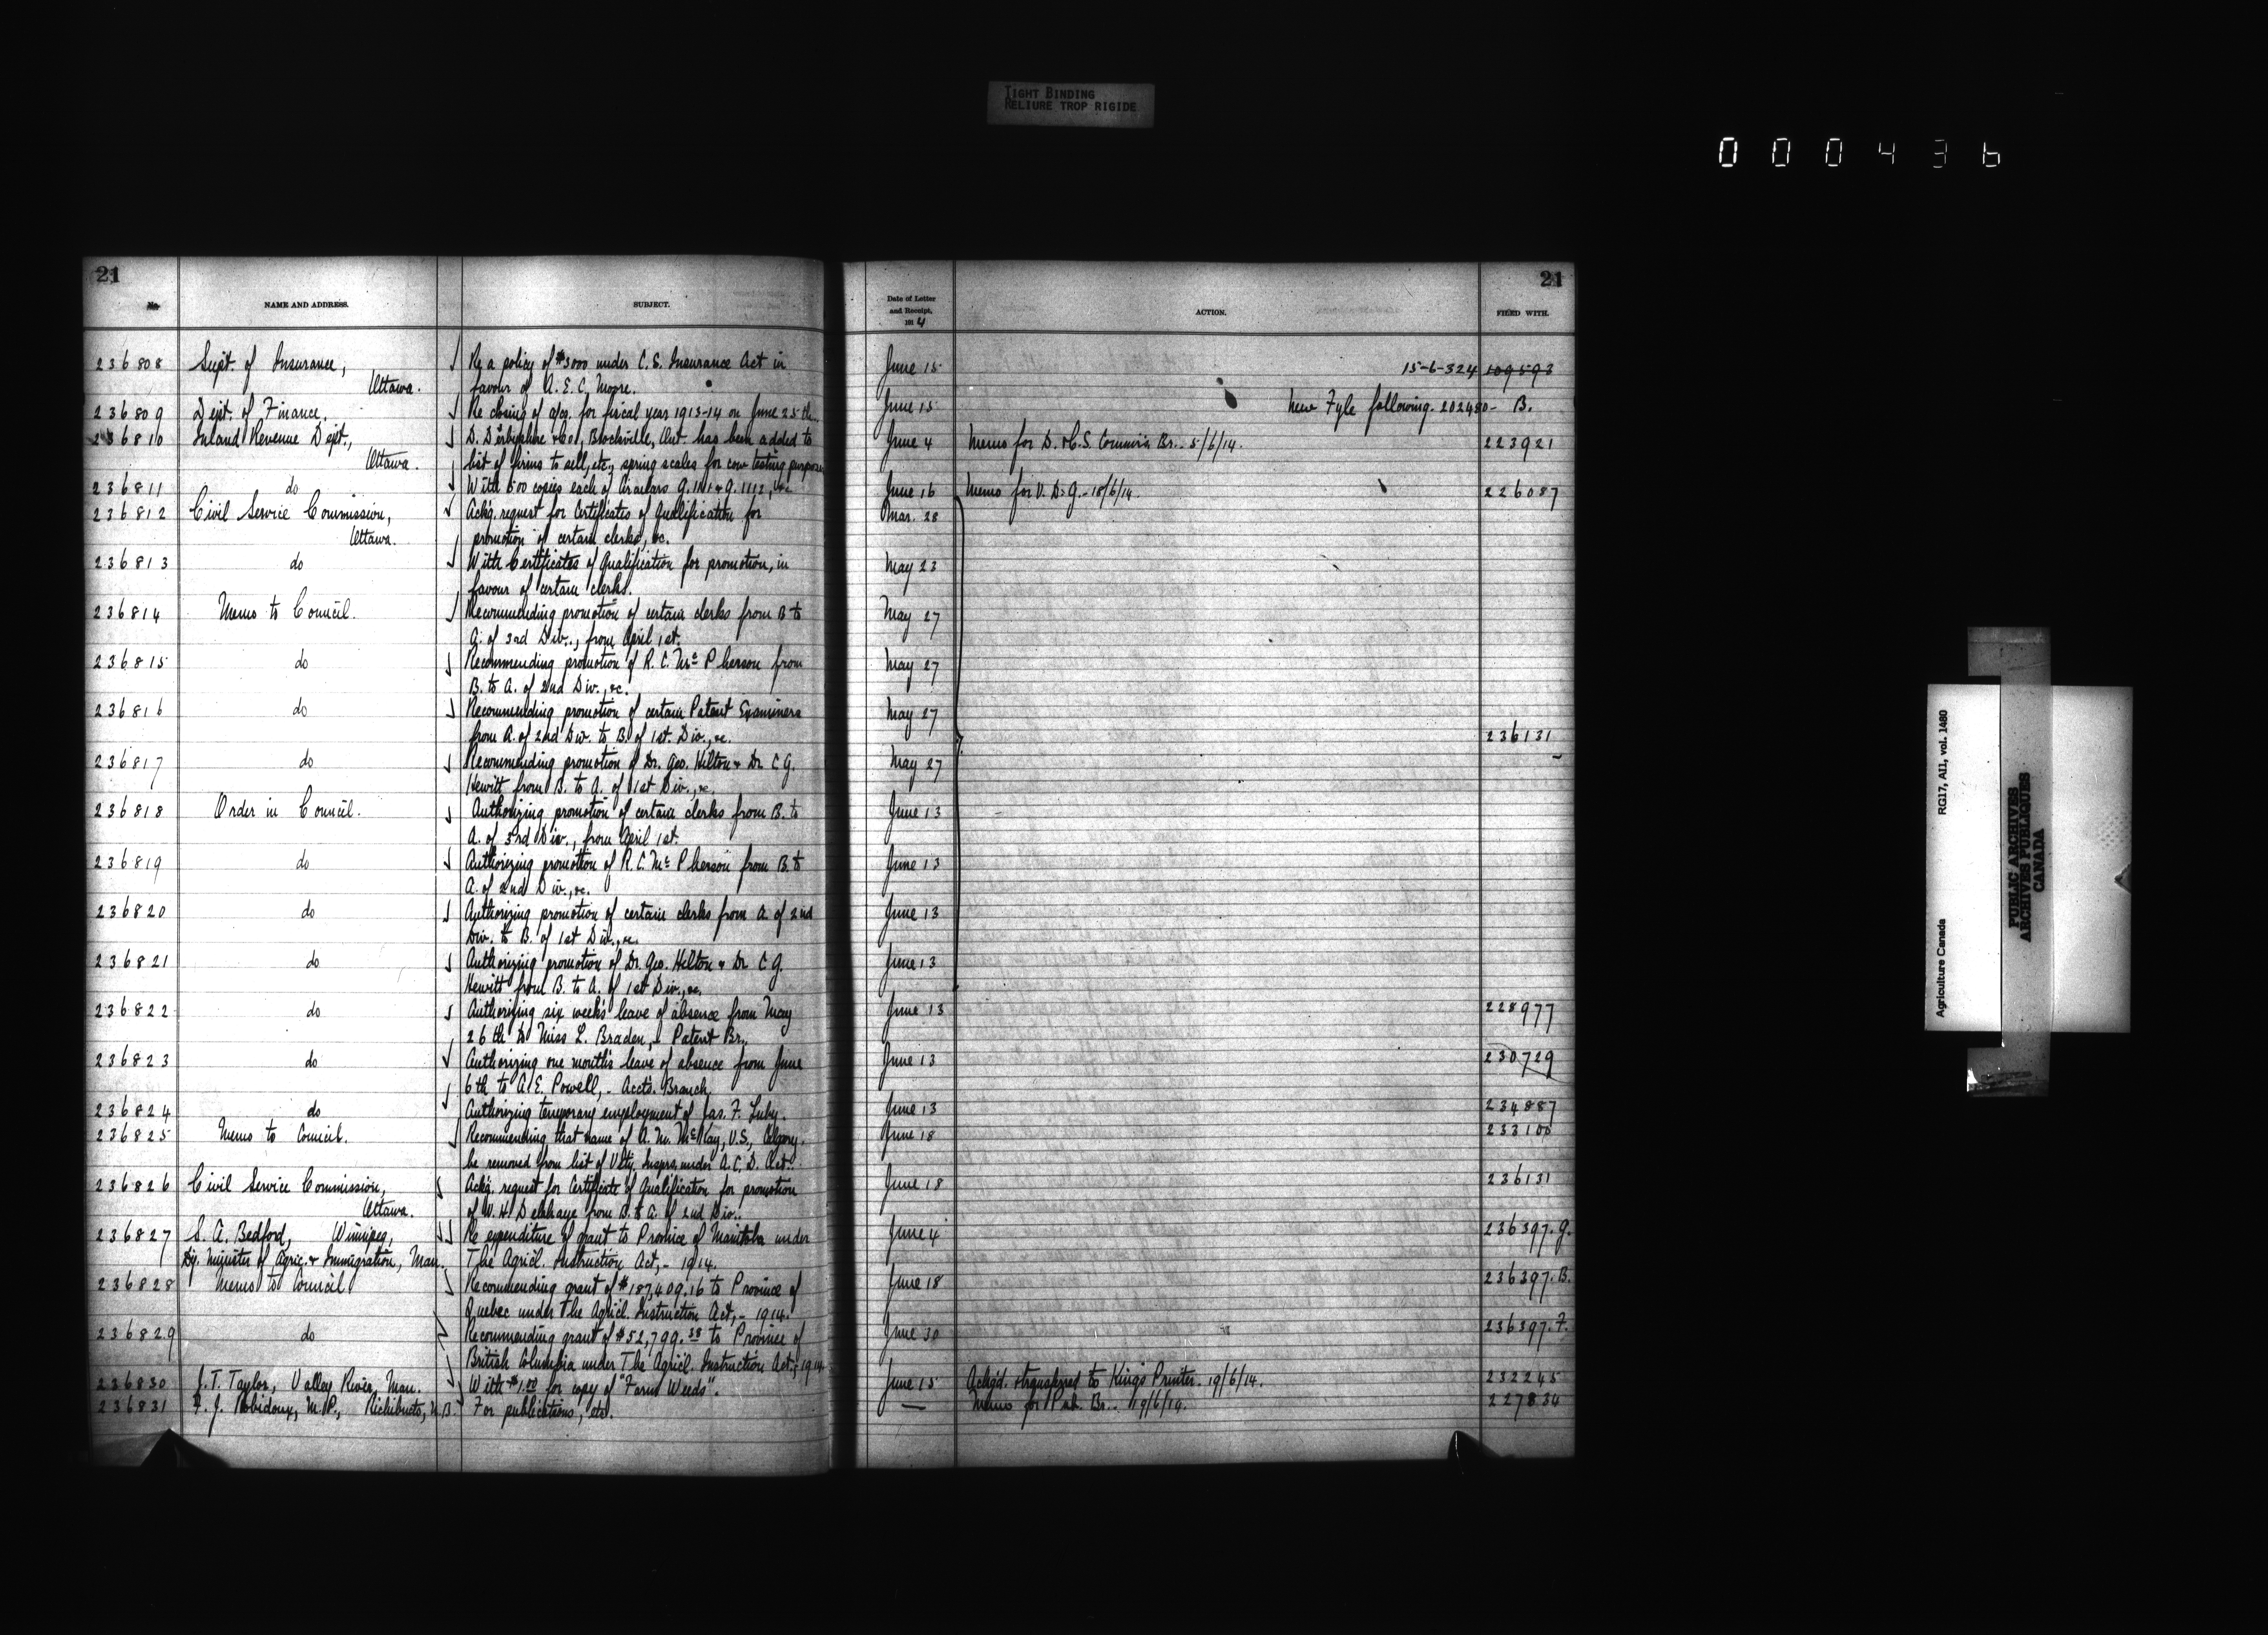 TIGHT BINDING
RELIURE TROP RIGIDE
000436
21
No. NAME AND ADDRESS. SUBJECT.
236808 Supt. of Insurance, Re a policy of $3000 under C. S. Insurance Act in
Ottawa. favour of A. E. C. Moore.
236809 Dept. of Finance. Re closing of a/cs. for fiscal year 1913-14 on June 25th.
236810 Inland Revenue Dept., D. Derbyshire & Co., Brockville, Ont. has been added to
Ottawa. list of firms to sell, etc., spring scales for cow testing purposes
236811 do With 500 copies each of Circulars G. & G. 1112, &c
236812 Civil Service Commission, Ackg. request for Certificates of Qualification for
Ottawa. promotion of certain clerks, &c.
236813 do With Certificates of Qualification for promotion, in
favour of certain clerks.
236814 Memo to Council. Recommending promotion of certain clerks from B to
A. of 3rd Div., from April 1st.
236815 do Recommending promotion of R. C. McPherson from
B. to A. of 2nd Div., &c.
236816 do Recommending promotion of certain Patent Examiners
from A. of 2nd Div. to B. of 1st. Div., &c.
236817 do Recommending promotion of Dr. Geo. Hilton & Dr. C G.
Hewitt from B. to A. of 1st Div., &c.
236818 Order in Council. Authorizing promotion of certain clerks from B. to
A. of 3rd Div., from April 1st.
236819 do Authorizing promotion of R. C. McPherson from B to
A. of 2nd Div., &c.
236820 do Authorizing promotion of certain clerks from A. of 2nd
Div. to B. of 1st Div., &c.
236821 do Authorizing promotion of Dr. Geo. Hilton & Dr. C G.
Hewitt from B. to A. of 1st Div., &c.
236822 do Authorizing six weeks leave of absence from May
26th to Miss L. Braden, Patent Br.
236823 do Authorizing one month's leave of absence from June
6th to A. E. Powell, - Accts. Branch
236824 do Authorizing temporary employment of Jas. F. Luby.
236825 Memo to Council. Recommending that name of A. M. McKay, V.S., Calgary.
be removed from list of Vety. Insprs. under A. C. D. Act.
236826 Civil Service Commission, Ackg. request for Certificate of Qualification for promotion
Ottawa. of W. H. Delahaye from B. to A. of 2nd Div.
236827 S. A. Bedford, Winnipeg, Re expenditure of grant to Province of Manitoba under
Dy. Minister of Agric. & Immigration, Man. The Agricl. Instruction Act, - 1914.
236828 Memo to Council Recommending grant of $187,409.16 to Province of
Quebec under The Agricl. Instruction Act, - 1914.
236829 do Recommending grant of $52,799.38 to Province of
British Columbia under The Agricl. Instruction Act, - 1914
236830 J. T. Taylor, Valley River, Man. With $1.00 for copy of "Farm Weeds".
236831 F. J. Robidoux, M.P., Richibucto, N.B. For publications, etc.
21
Date of Letter and Receipt, 1914 ACTION. FILED WITH.
June 15 15-6-324 109593
June 15 New Fyle following. 202480 - B.
June 4 Memo for D. & C. S. Commr's Br. 5/6/14. 223921
June 16 Memo for V. D. G. - 18/6/14. 226087
Mar. 28
May 23
May 27
May 27
May 27 236131
May 27
June 13
June 13
June 13
June 13
June 13 228977
June 13 230729
June 13 234887
June 18 233100
June 18 236131
June 4 236397. G.
June 18 236397. B.
June 30 236397. F.
June 15 Ackgd. & transferred to King's Printer. 19/6/14. 232245
— Memo for Pub. Br. 19/6/14. 227834
Agriculture Canada RG17, AII, vol. 1480
PUBLIC ARCHIVES
ARCHIVES PUBLIQUES
CANADA